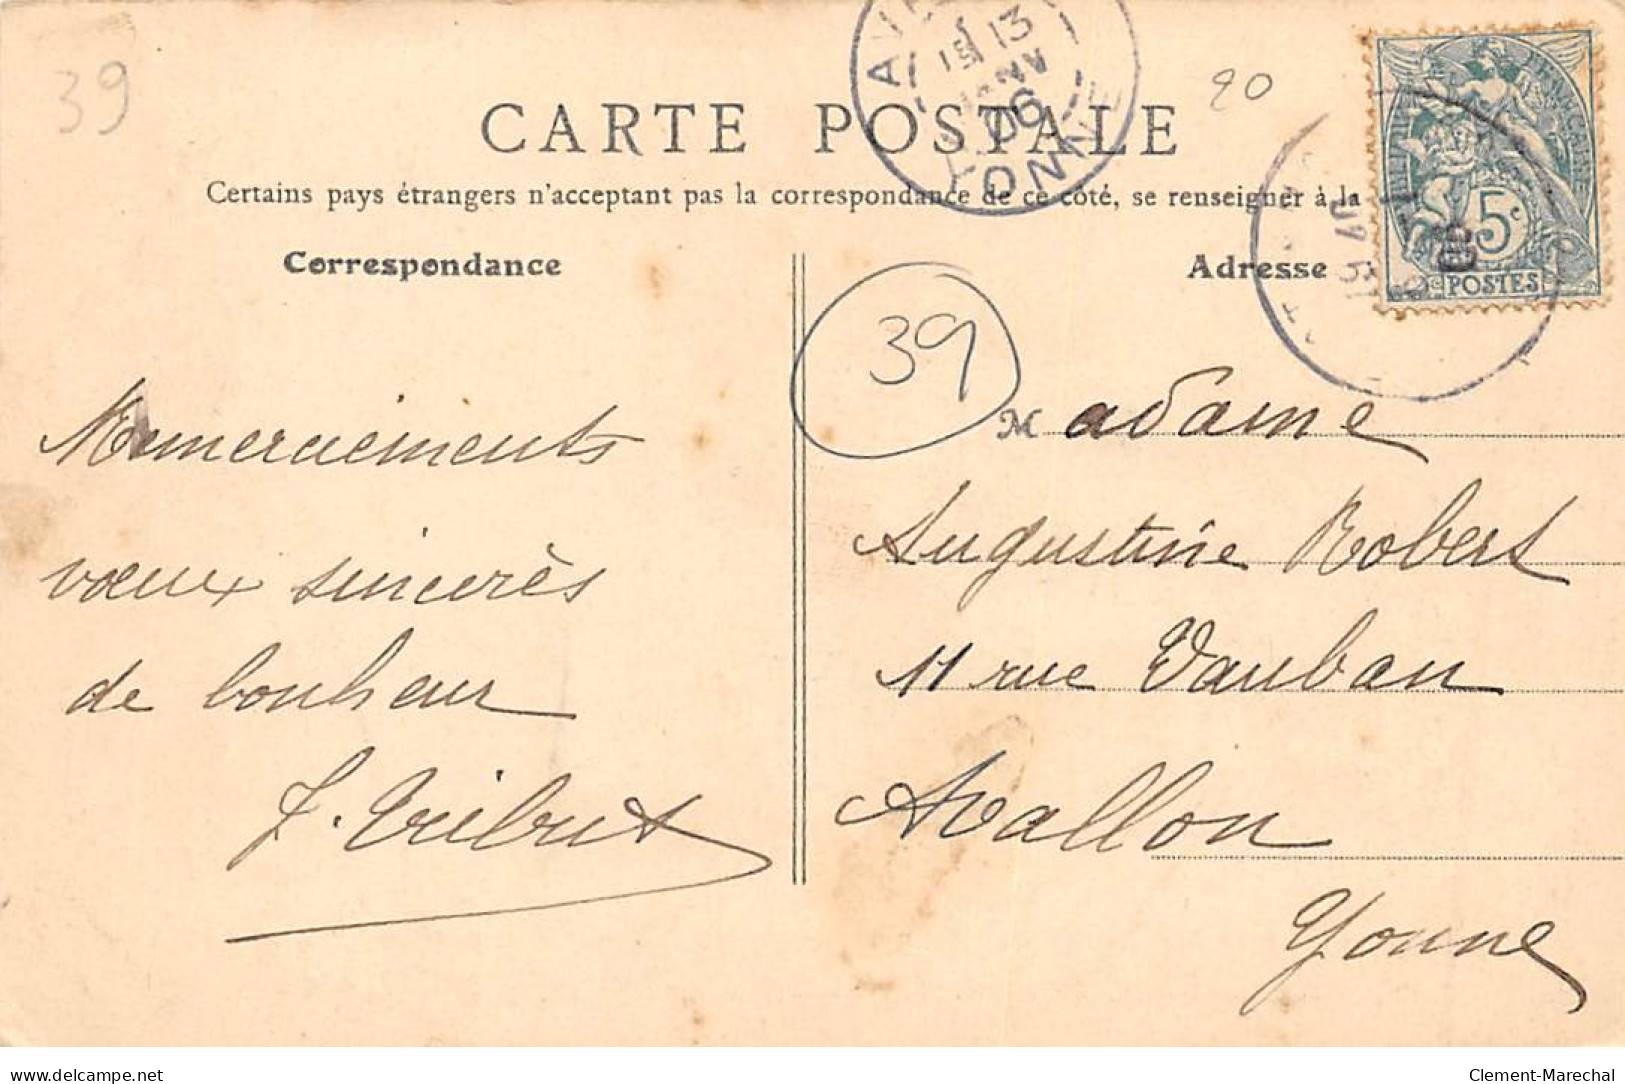 39
20
CARTE POSTALE
Certains pays étrangers n'acceptant pas la correspondance de ce côté, se renseigner à la
Correspondance
Adresse
39
Remerciements
vœux sincerès
de bonheur
J. Tribut
Madame
Augustine Robert
11 rue Vauban
Avallon
Yonne
13
JANV
06
YONNE
FRANCAISE
5c
POSTES
delcampe.net
Clement-Marechal